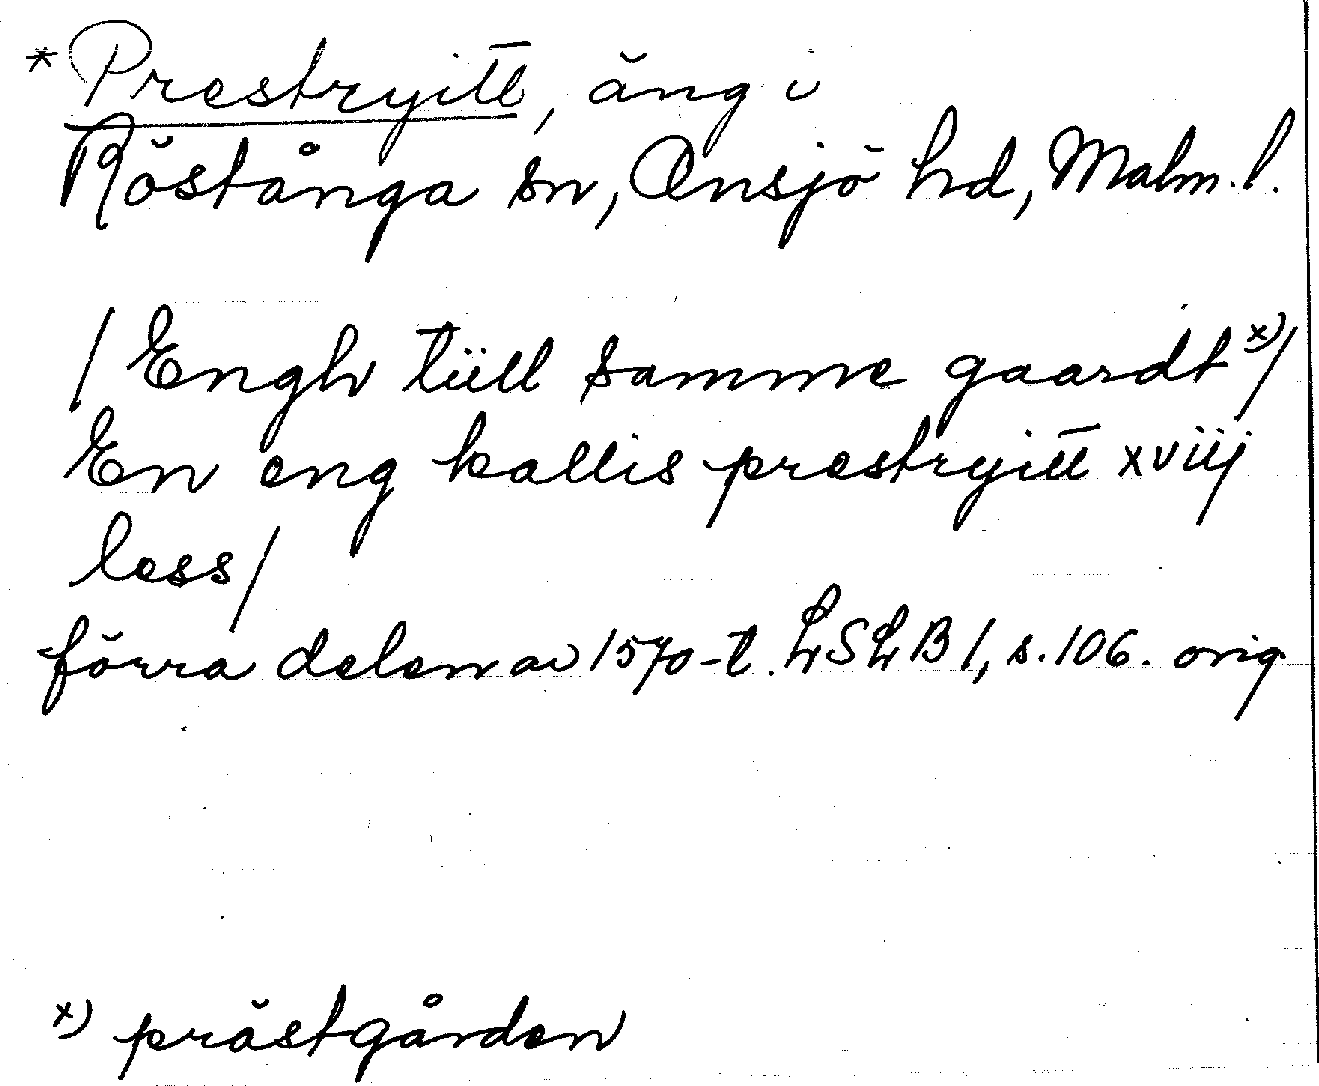 * Prestryitt, äng i
Röstånga sn, Onsjö hd, Malm. l.
/ Engh tiill samme gaardt x) /
En eng kallis prestryitt xviij
less /
förra delen av 1570-t. LSLB I, s. 106. orig.
x) prästgården